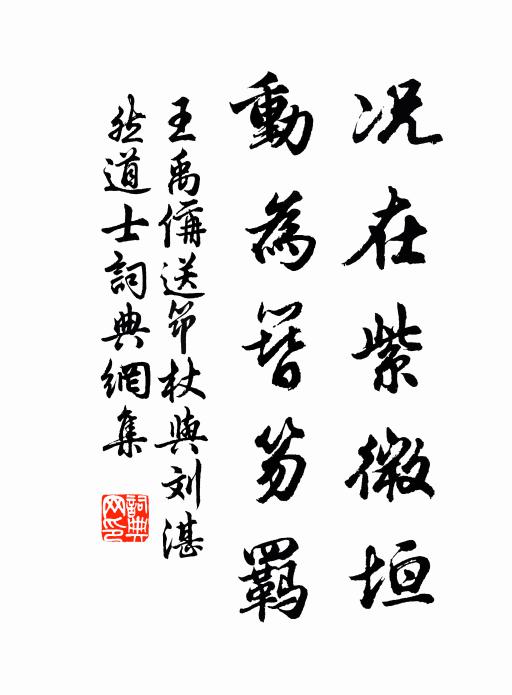 况在紫微垣
動為簪笏羈
王禹偁送筇杖與刘湛
然道士詞典網集
詞典网印